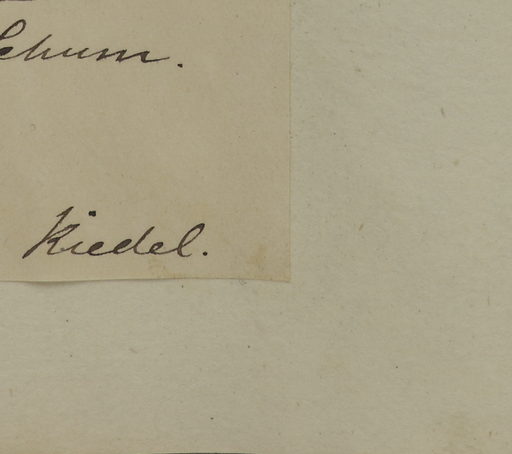 Schum.
Riedel.